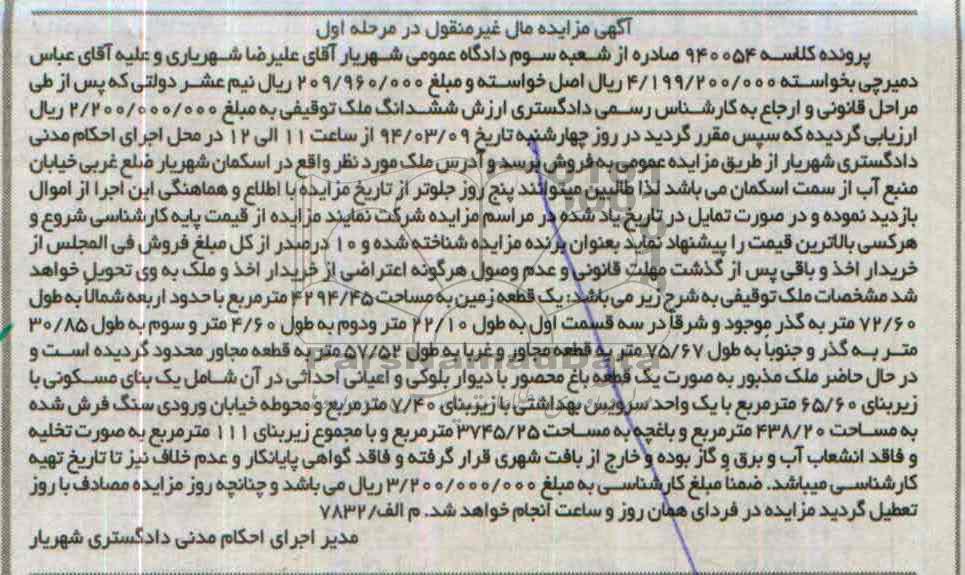 آگهی مزایده مال غیرمنقول در مرحله اول
پرونده کلاسه ۹۴۰۰۵۴ صادره از شعبه سوم دادگاه عمومی شهریار آقای علیرضا شهریاری و علیه آقای عباس
دمیرچی بخواسته ۴/۱۹۹/۲۰۰/۰۰۰ ریال اصل خواسته و مبلغ ۲۰۹/۹۶۰/۰۰۰ ریال نیم عشر دولتی که پس از طی
مراحل قانونی و ارجاع به کارشناس رسمی دادگستری ارزش ششدانگ ملک توقیفی به مبلغ ۲/۲۰۰/۰۰۰/۰۰۰ ریال
ارزیابی گردیده که سپس مقرر گردید در روز چهارشنبه تاریخ ۹۴/۰۳/۰۹ از ساعت ۱۱ الی ۱۲ در محل اجرای احکام مدنی
دادگستری شهریار از طریق مزایده عمومی به فروش برسد و آدرس ملک مورد نظر واقع در اسکمان شهریار ضلع غربی خیابان
منبع آب از سمت اسکمان می باشد لذا طالبین میتوانند پنج روز جلوتر از تاریخ مزایده با اطلاع و هماهنگی این اجرا از اموال
بازدید نموده و در صورت تمایل در تاریخ یاد شده در مراسم مزایده شرکت نمایند مزایده از قیمت پایه کارشناسی شروع و
هرکسی بالاترین قیمت را پیشنهاد نماید بعنوان برنده مزایده شناخته شده و ۱۰ درصدر از کل مبلغ فروش فی المجلس از
خریدار اخذ و باقی پس از گذشت مهلت قانونی و عدم وصول هرگونه اعتراضی از خریدار اخذ و ملک به وی تحویل خواهد
شد مشخصات ملک توقیفی به شرح زیر می باشد: یک قطعه زمین به مساحت ۴۲۹۴/۴۵ مترمربع با حدود اربعه شمالاً به طول
۷۲/۶۰ متر به گذر موجود و شرقاً در سه قسمت اول به طول ۲۲/۱۰ متر ودوم به طول ۴/۶۰ متر و سوم به طول ۳۰/۸۵
متر به گذر و جنوباً به طول ۷۵/۶۷ متر به قطعه مجاور و غربا به طول ۵۷/۵۲ متر به قطعه مجاور محدود گردیده است و
در حال حاضر ملک مذبور به صورت یک قطعه باغ محصور با دیوار بلوکی و اعیانی احداثی در آن شامل یک بنای مسکونی با
زیربنای ۶۵/۶۰ مترمربع با یک واحد سرویس بهداشتی با زیربنای ۷/۴۰ مترمربع و محوطه خیابان ورودی سنگ فرش شده
به مساحت ۴۳۸/۲۰ مترمربع و باغچه به مساحت ۳۷۴۵/۲۵ مترمربع و با مجموع زیربنای ۱۱۱ مترمربع به صورت تخلیه
و فاقد انشعاب آب و برق و گاز بوده و خارج از بافت شهری قرار گرفته و فاقد گواهی پایانکار و عدم خلاف نیز تا تاریخ تهیه
کارشناسی میباشد. ضمنا مبلغ کارشناسی به مبلغ ۳/۲۰۰/۰۰۰/۰۰۰ ریال می باشد و چنانچه روز مزایده مصادف با روز
تعطیل گردید مزایده در فردای همان روز و ساعت انجام خواهد شد. م الف/۷۸۳۲
مدیر اجرای احکام مدنی دادگستری شهریار
ParsNamadData